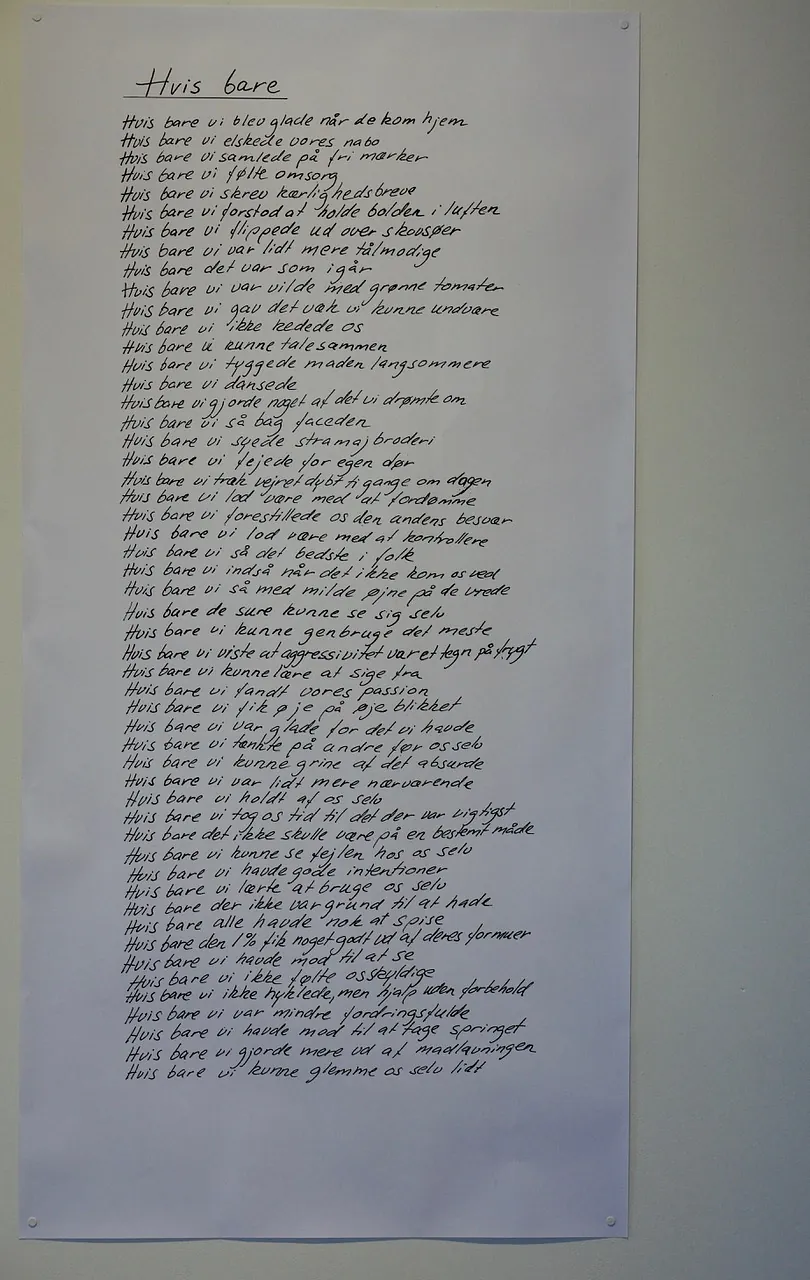 Hvis bare
Hvis bare vi blev glade når de kom hjem
Hvis bare vi elskede vores nabo
Hvis bare vi samlede på fri mærker
Hvis bare vi følte omsorg
Hvis bare vi skrev kærlighedsbreve
Hvis bare vi forstod at holde bolden i luften
Hvis bare vi flippede ud over skovsøer
Hvis bare vi var lidt mere tålmodige
Hvis bare det var som igår
Hvis bare vi var vilde med grønne tomater
Hvis bare vi gav det væk vi kunne undvære
Hvis bare vi ikke kedede os
Hvis bare vi kunne tale sammen
Hvis bare vi tyggede maden langsommere
Hvis bare vi dansede
Hvis bare vi gjorde noget af det vi drømte om
Hvis bare vi så bag facaden
Hvis bare vi syede stramaj broderi
Hvis bare vi fejede for egen dør
Hvis bare vi trak vejret dybt ti gange om dagen
Hvis bare vi lod være med at fordømme
Hvis bare vi forestillede os den andens besvær
Hvis bare vi lod være med at kontrollere
Hvis bare vi så det bedste i folk
Hvis bare vi indså når det ikke kom os ved
Hvis bare vi så med milde øjne på de vrede
Hvis bare de sure kunne se sig selv
Hvis bare vi kunne genbruge det meste
Hvis bare vi viste at aggressivitet var et tegn på frygt
Hvis bare vi kunne lære at sige fra
Hvis bare vi fandt vores passion
Hvis bare vi fik øje på øje blikket
Hvis bare vi var glade for det vi havde
Hvis bare vi tænkte på andre før os selv
Hvis bare vi kunne grine af det absurde
Hvis bare vi var lidt mere nærværende
Hvis bare vi holdt af os selv
Hvis bare vi tog os tid til det der var vigtigst
Hvis bare det ikke skulle være på en bestemt måde
Hvis bare vi kunne se fejlen hos os selv
Hvis bare vi havde gode intentioner
Hvis bare vi lærte at bruge os selv
Hvis bare der ikke var grund til at hade
Hvis bare alle havde nok at spise
Hvis bare den 1% fik noget godt ud af deres formuer
Hvis bare vi havde mod til at se
Hvis bare vi ikke følte os skyldige
Hvis bare vi ikke hyklede, men hjalp uden forbehold
Hvis bare vi var mindre fordringsfulde
Hvis bare vi havde mod til at tage springet
Hvis bare vi gjorde mere ud af madlavningen
Hvis bare vi kunne glemme os selv lidt